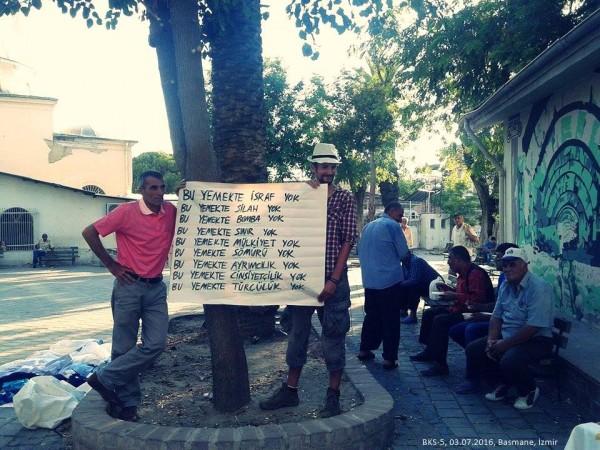 BU YEMEKTE İSRAF YOK
BU YEMEKTE SİLAH YOK
BU YEMEKTE BOMBA YOK
BU YEMEKTE SINIR YOK
BU YEMEKTE MÜLKİYET YOK
BU YEMEKTE SÖMÜRÜ YOK
BU YEMEKTE AYRIMCILIK YOK
BU YEMEKTE CİNSİYETÇİLİK YOK
BU YEMEKTE TÜRCÜLÜK YOK
BKS-5, 03.07.2016, Basmane, İzmir